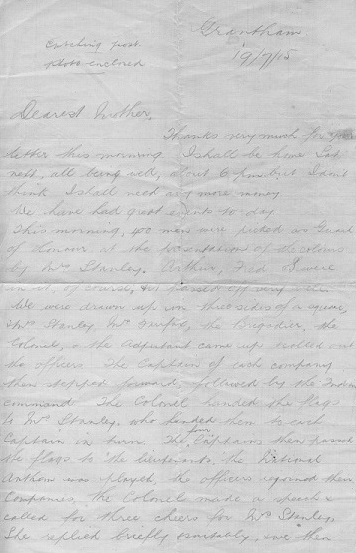 Grantham
19/7/15
Catching post
photo enclosed
Dearest Mother,
Thanks very much for your
letter this morning. I shall be home Sat
next, all being well, about 6 pm but I don't
think I shall need any more money
We have had great event to day
This morning, 400 men were picked as Guard
of Honour at the presentation of the colours
by Mrs Stanley. Arthur, Fred & I were
in it, of course, & it passed off very well.
We were drawn up on three sides of a square,
Mrs Stanley, Mrs the Brigadier, the
Colonel, & the Adjutant came up & called out
the officers. The Captain of each company
then stepped forward, followed by the 2nd in
command. The Colonel handed the flags
to Mrs Stanley, who handed them to each
Captain in turn. The Captains then passed
the flags to the lieutenants, the National
Anthem was played, the officers rejoined their
Companies, the Colonel made a speech &
called for three cheers for Mrs Stanley.
She replied briefly & suitably, we then